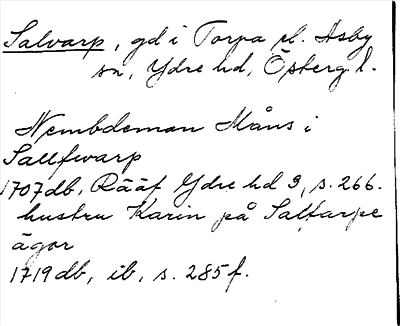 Salvarp, gd i Torpa el. Asby
sn, Ydre hd, Österg. l.
Nembdeman Måns i
Sallfwarp
1707 db, Rääf Ydre hd 3, s. 266.
hustru Karin på Salfarpe
ägor
1719 db, ib, s. 285 f.